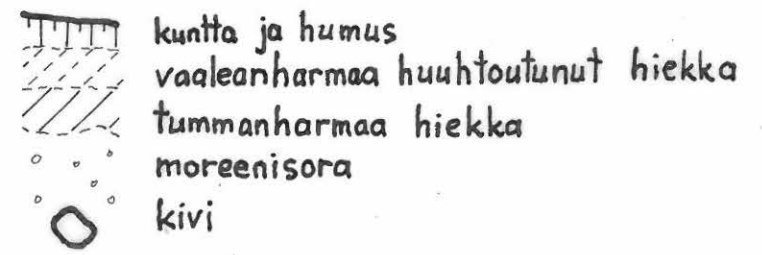 kuntta ja humus
vaaleanharmaa huuhtoutunut hiekka
tummanharmaa hiekka
moreenisora
kivi